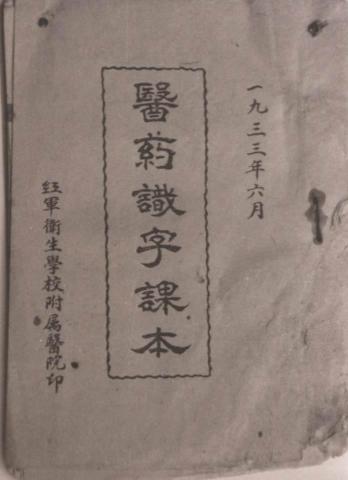 一九三三年六月
醫药識字課本
红軍衛生學校附属醫院印